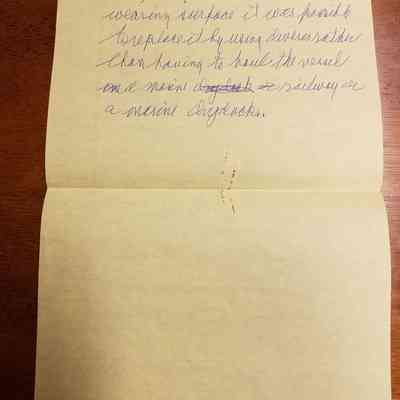 wearing surface it was possible
to replace it by using divers rather
than having to haul the vessel
on a marine drydock or railway or
a marine drydocks.